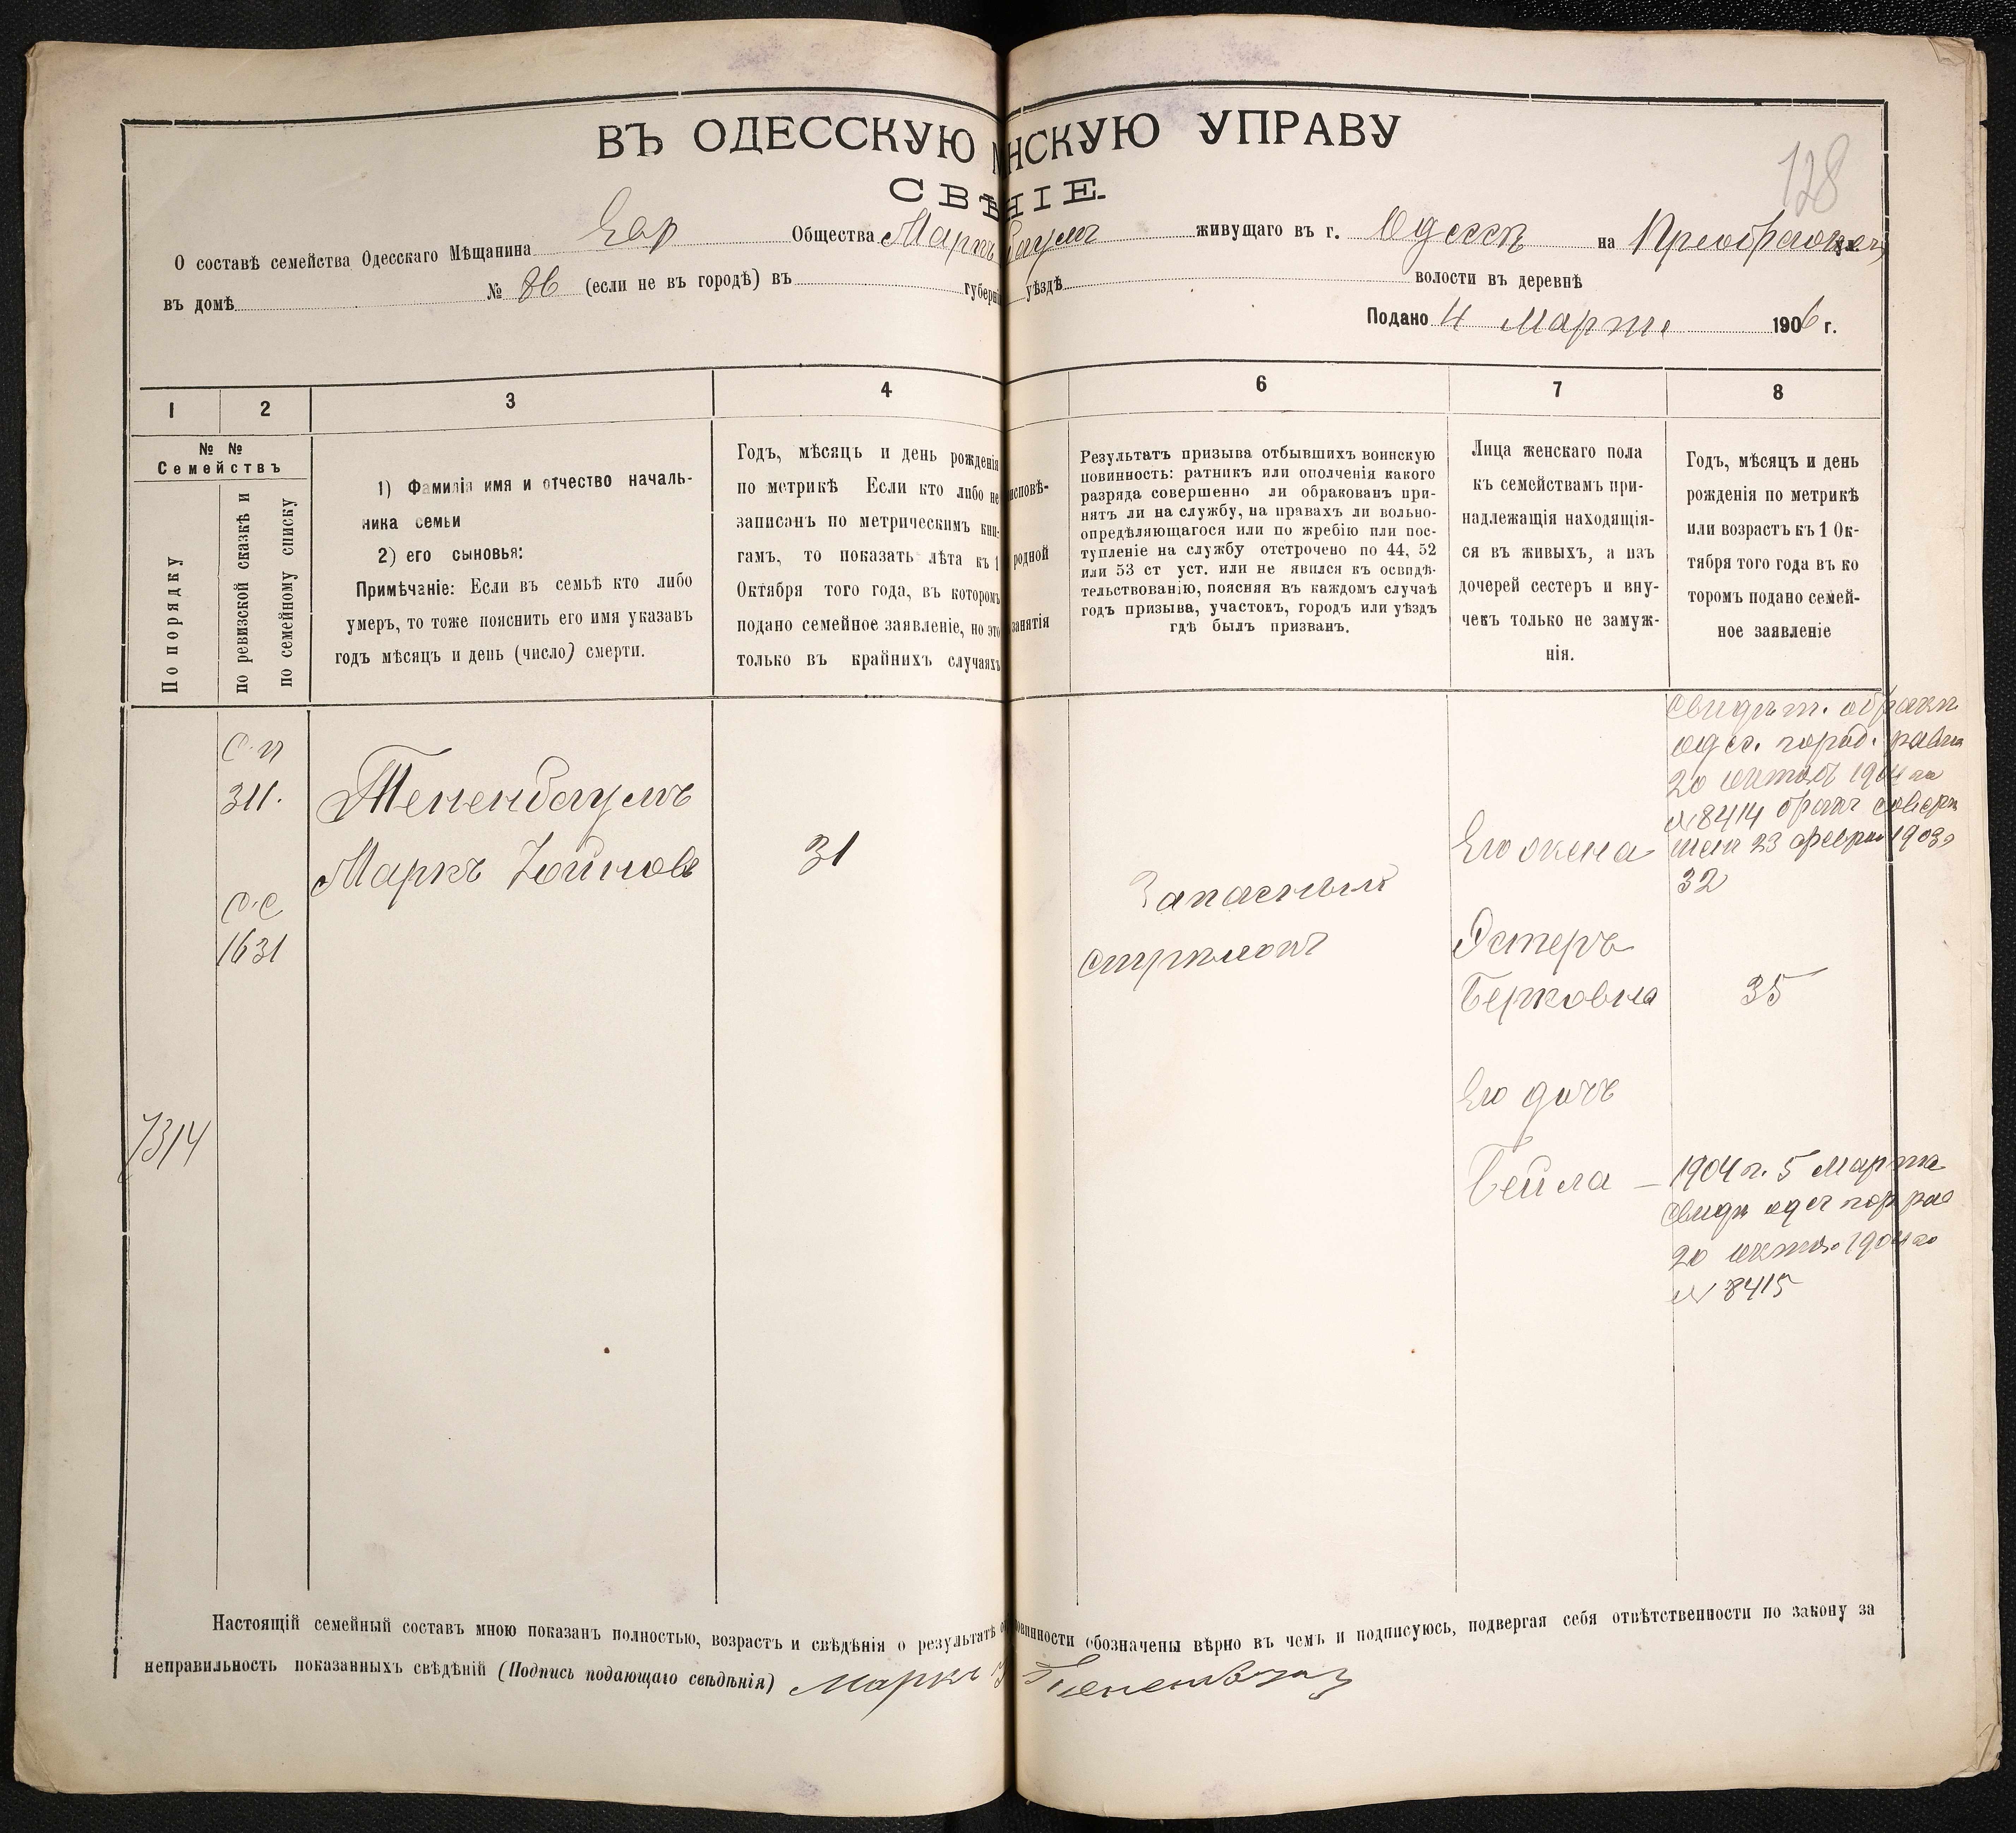 128
ВЪ ОДЕССКУЮ НСКУЮ УПРАВУ
СВѢНІЕ.
О составѣ семейства Одесскаго Мѣщанина Евр Общества Маркъ баумъ живущаго въ г. Одессѣ на
въ домѣ № 86 (если не въ городѣ) въ губерні уѣздѣ волости въ деревнѣ
Подано 4 Марта 1906 г.
1 2 3 4 6 7 8
№ №
Семействъ
По порядку
по ревизской сказкѣ и
по семейному списку
1) Фамилія имя и отчество началь-
ника семьи
2) его сыновья:
Примѣчаніе: Если въ семьѣ кто либо
умеръ, то тоже пояснить его имя указавъ
годъ мѣсяцъ и день (число) смерти.
Годъ, мѣсяцъ и день рожденія
по метрикѣ Если кто либо не
записанъ по метрическимъ кни-
гамъ, то показать лѣта къ 1
Октября того года, въ которомъ
подано семейное заявленіе, но это
только въ крайнихъ случаяхъ
исповѣ-
родной
занятія
Результатъ призыва отбывшихъ воинскую
повинность: ратникъ или ополченія какого
разряда совершенно ли обракованъ при-
нятъ ли на службу, на правахъ ли вольно-
опредѣляющагося или по жребію или пос-
тупленіе на службу отстрочено по 44, 52
или 53 ст уст. или не явился къ освидѣ-
тельствованію, поясняя въ каждомъ случаѣ
годъ призыва, участокъ, городъ или уѣздъ
гдѣ былъ призванъ.
Лица женскаго пола
къ семействамъ при-
надлежащія находящія-
ся въ живыхъ, а изъ
дочерей сестеръ и вну-
чекъ только не замуж-
нія.
Годъ, мѣсяцъ и день
рожденія по метрикѣ
или возрастъ къ 1 Ок-
тября того года въ ко
торомъ подано семей-
ное заявленіе
7314
с. п
311.
с. с
1631
Тененбаумъ
Маркъ Хоиновъ
31
Запасный
стрѣлокъ
Его жена
Эстеръ
Берковна
Его дочь
Бейла —
Свидѣт. о бракѣ
одес. город. равви
20 октяб 1904 го
№ 8414 бракъ соверш
шен 23 февраля 1903
32
35
1904 г. 5 Марта
20 октяб 1904 го
№ 8415
Настоящій семейный составъ мною показанъ полностью, возрастъ и свѣдѣнія о результатѣ о овинности обозначены вѣрно въ чемъ и подписуюсь, подвергая себя отвѣтственности по закону за
неправильность показанныхъ свѣдѣній (Подпись подающаго свѣдѣнія) Маркъ Тененбаум